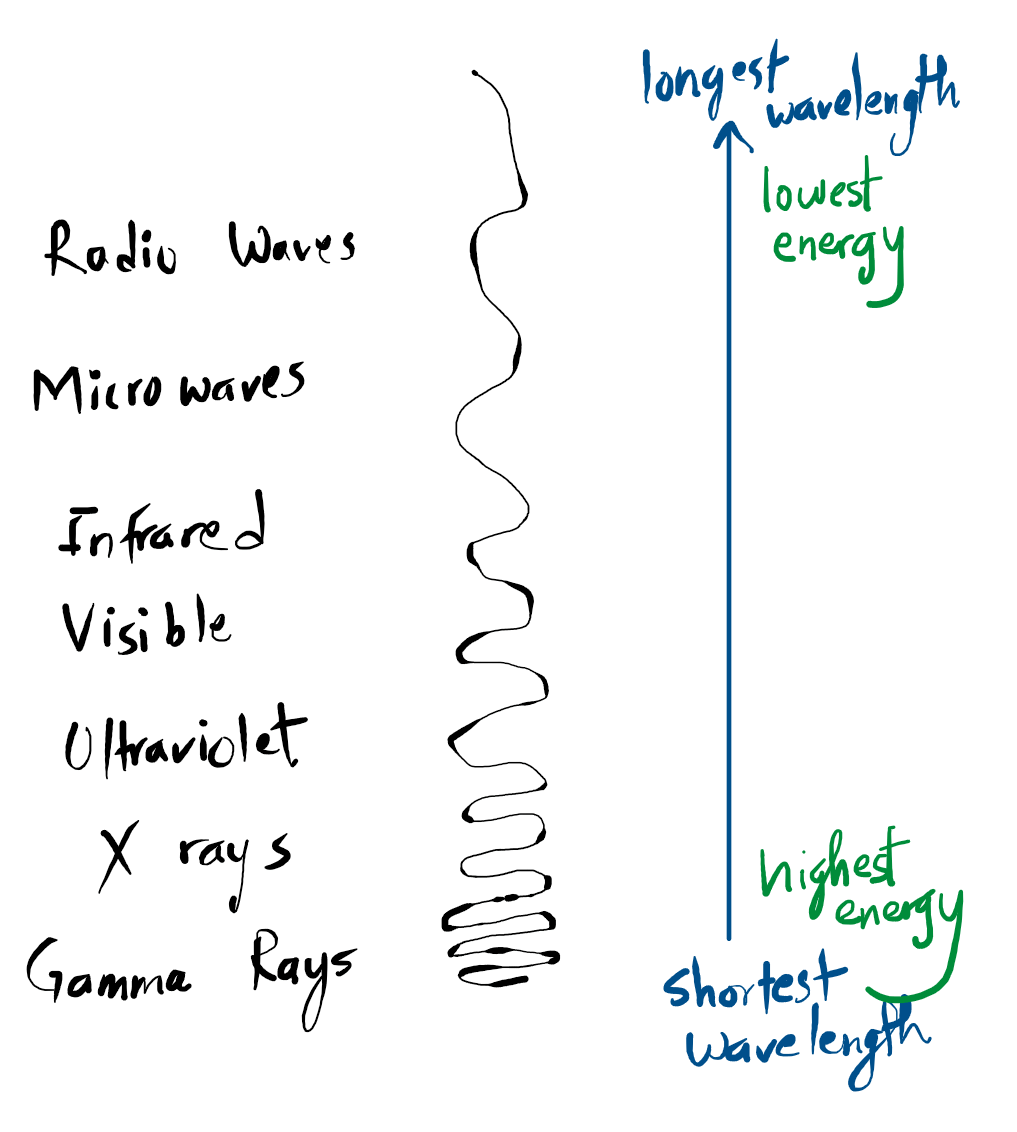 longest
wavelength
lowest
energy
Radio Waves
Microwaves
Infrared
Visible
Ultraviolet
X rays
Gamma Rays
highest
energy
shortest
wavelength